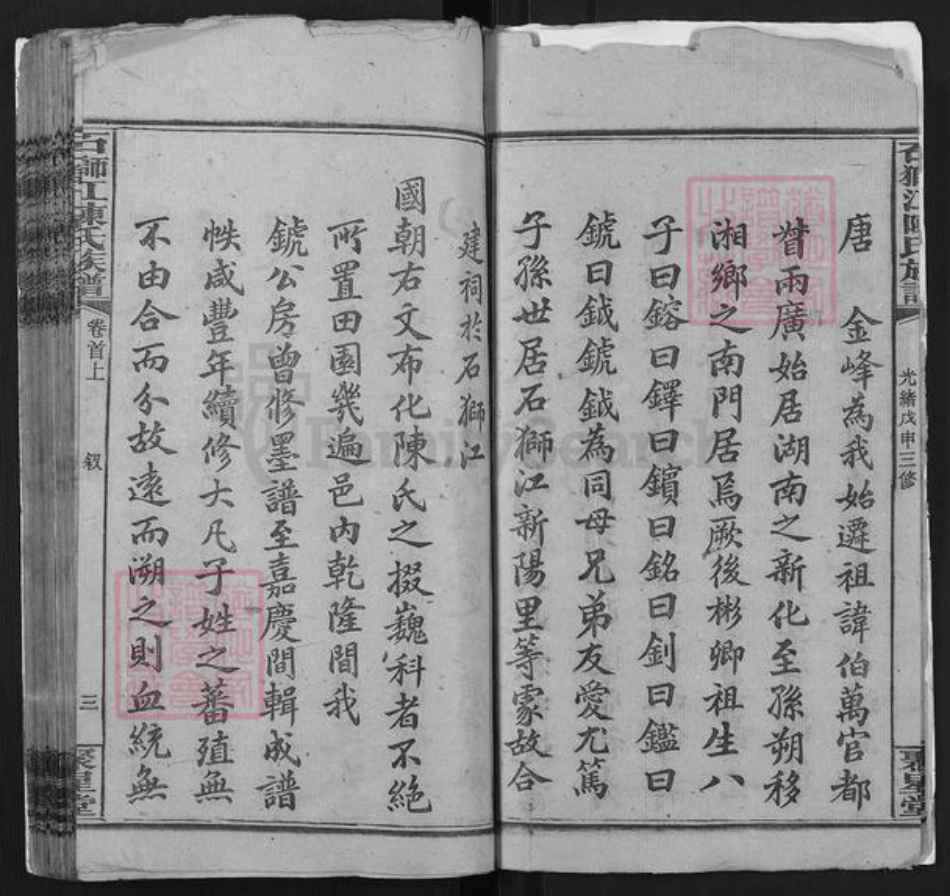 石獅江陳氏族譜
光緒戊申三修
聚星堂
唐 金峰為我始遷祖諱伯萬官都
督兩廣始居湖南之新化至孫朔移
湘鄉之南門居焉厥後彬卿祖生八
子曰鎔曰鐸曰鑌曰銘曰釗曰鑑曰
鏚曰鉞鏚鉞為同母兄弟友愛尤篤
子孫世居石獅江新陽里等處故合
建祠於石獅江
國朝右文布化陳氏之掇巍科者不絕
所置田園幾遍邑內乾隆間我
鏚公房曾修墨譜至嘉慶間輯成譜
帙咸豐年續修大凡子姓之蕃殖無
不由合而分故遠而溯之則血統無
石獅江陳氏族譜
卷首上
叙
三
聚星堂
FamilySearch